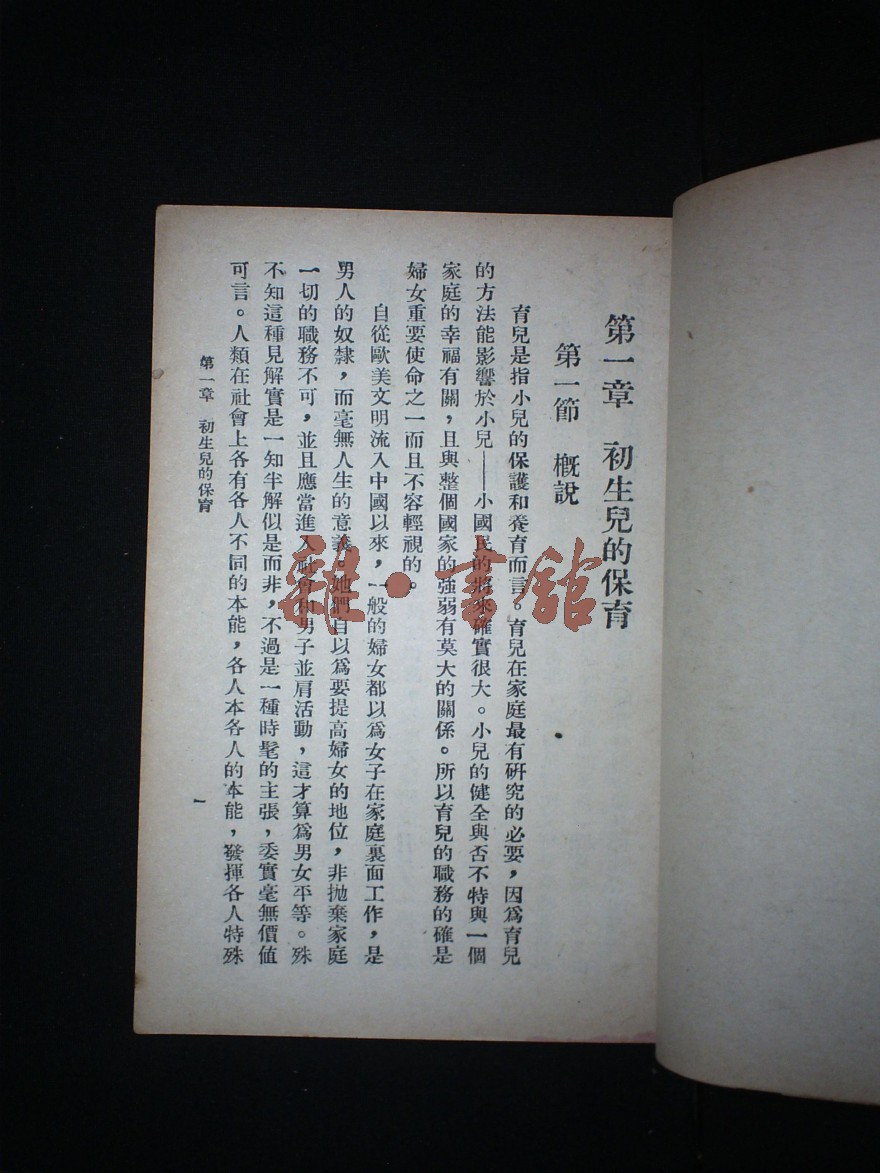 第一章　初生兒的保育
第一節　概說
育兒是指小兒的保護和養育而言。育兒在家庭最有研究的必要，因爲育兒
的方法能影響於小兒——小國民的將來確實很大。小兒的健全與否不特與一個
家庭的幸福有關，且與整個國家的強弱有莫大的關係。所以育兒的職務的確是
婦女重要使命之一而且不容輕視的。
自從歐美文明流入中國以來，一般的婦女都以爲女子在家庭裏面工作，是
男人的奴隸，而毫無人生的意義。她們自以爲要提高婦女的地位，非拋棄家庭
一切的職務不可，並且應當進入社會和男子並肩活動，這才算爲男女平等。殊
不知這種見解實是一知半解似是而非，不過是一種時髦的主張，委實毫無價値
可言。人類在社會上各有各人不同的本能，各人本各人的本能，發揮各人特殊
第一章　初生兒的保育
一
雜·書館